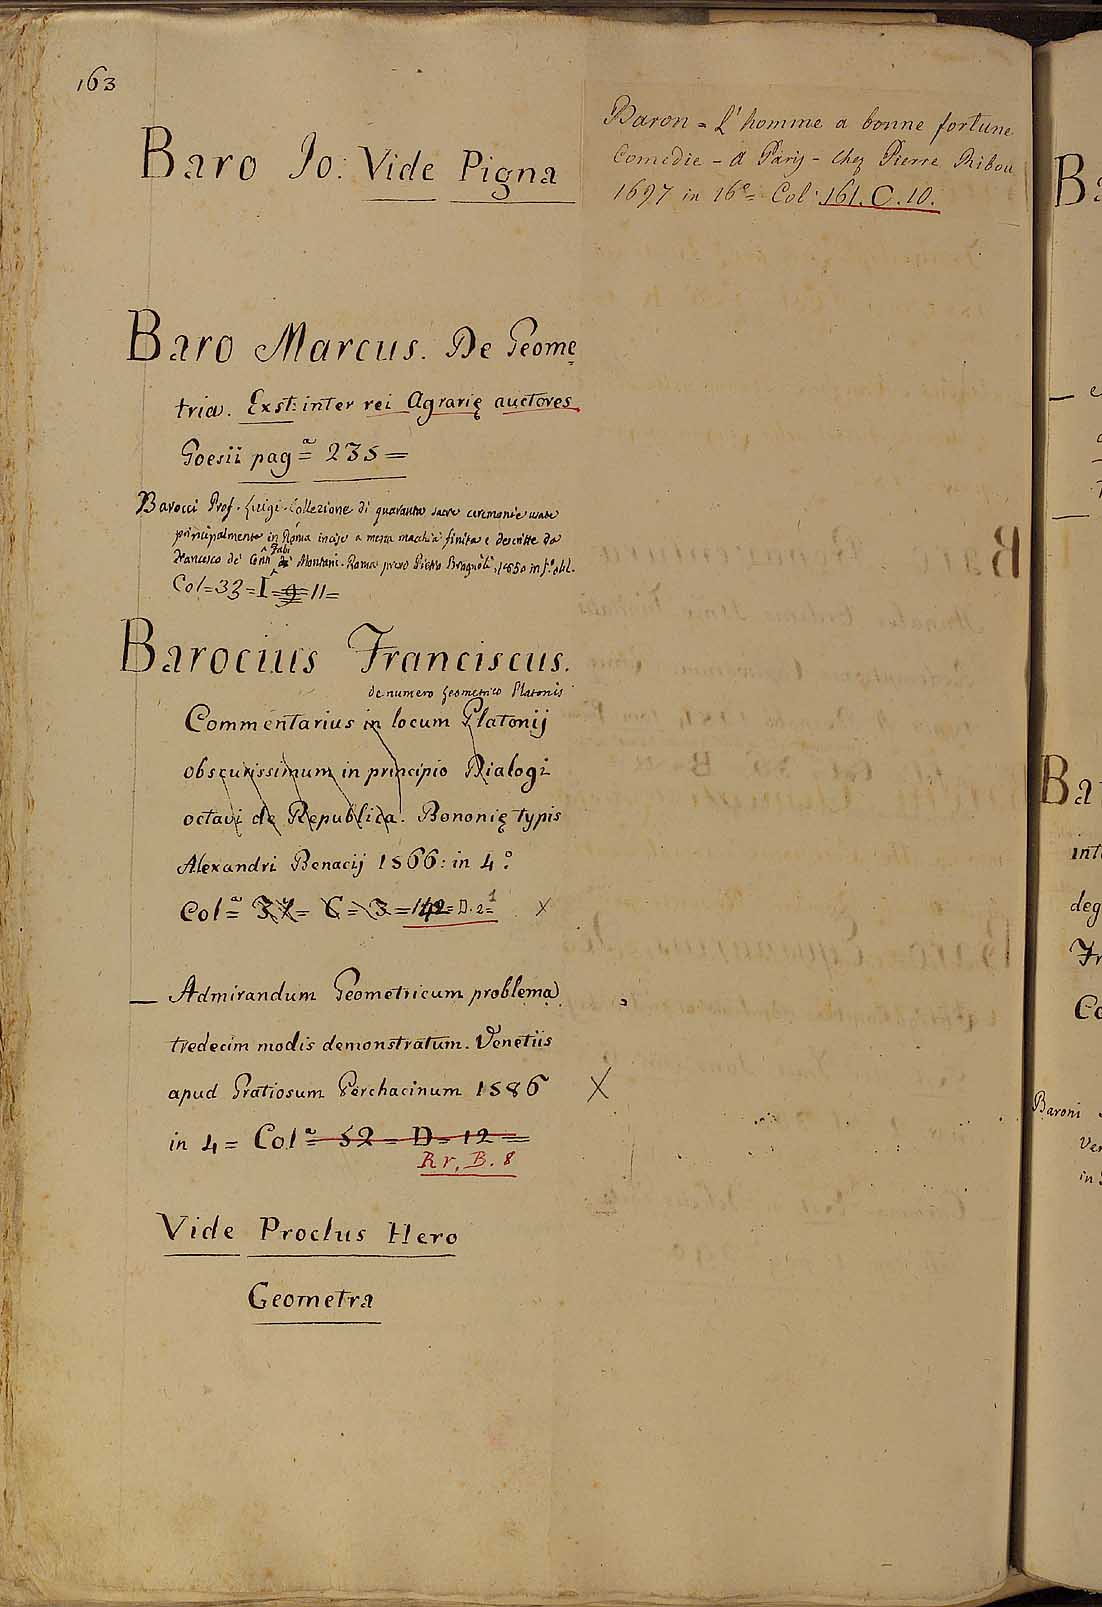 163
Baro Io: Vide Pigna
Baro Marcus. De Geome
tria. Exst: inter rei Agrarię auctores
Goesii pag.ª = 235 =
Barocci Prof. Luigi. Collezione di quaranta sacre ceremonie usate
principalmente in Roma incise a mezza macchia finita e descritte da
Francesco de' Conti Fabi Montani. Roma presso Pietro 1850 in f.º obl.
Col = 33 = I = 9 = 11 =
Barocius Franciscus.
de numero Geometrico Platonis
Commentarius in locum Platonij
obscurissimum in principio Dialogi
octavi de Republica. Bononię typis
Alexandri Benacij 1566: in 4.º
Colª = 37 = C = 3 = 142 = D. 2 = 1 X
— Admirandum Geometricum problema
tredecim modis demonstratum. Venetiis
apud Gratiosum Perchacinum 1586 X
in 4 = Colª = 52 = D = 12 =
R r. B. 8
Vide Proclus Hero
Geometra
Baron = L'homme a bonne fortune
Comedie - a Parij - chez Pierre Ribou
1697 in 16º = Col. 161. C. 10.
Ba
Ba
inte
deg
Fr
Co
Baroni
Ver
in